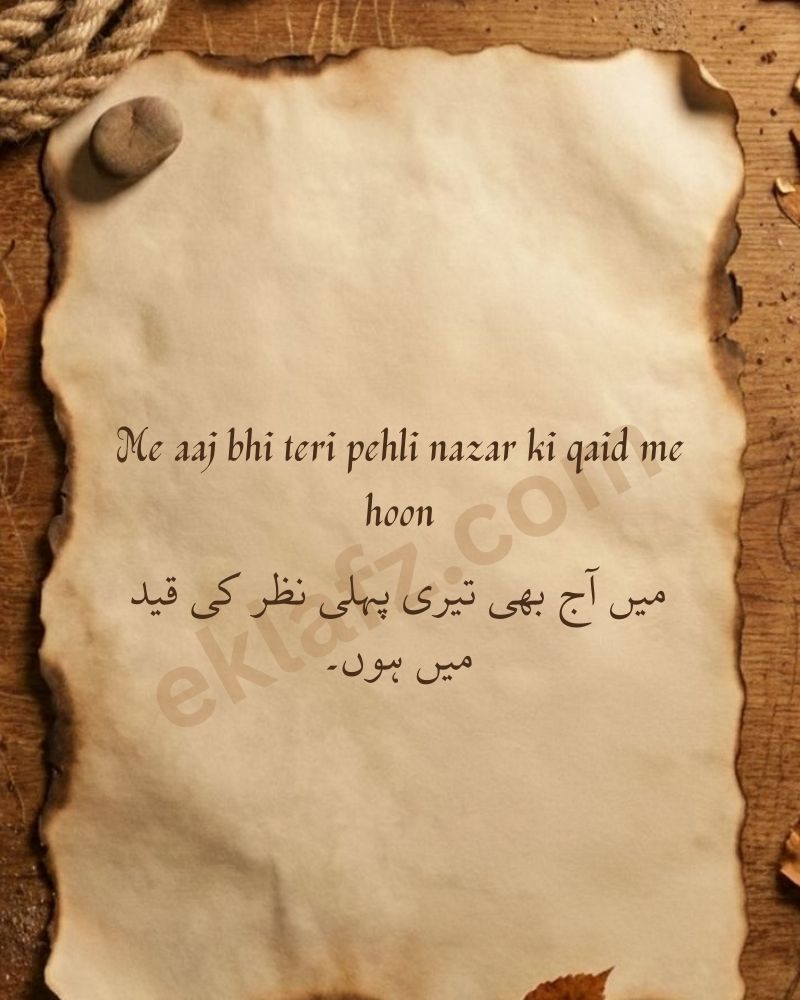 Me aaj bhi teri pehli nazar ki qaid me
hoon
میں آج بھی تیری پہلی نظر کی قید
میں ہوں۔
ektafz.com